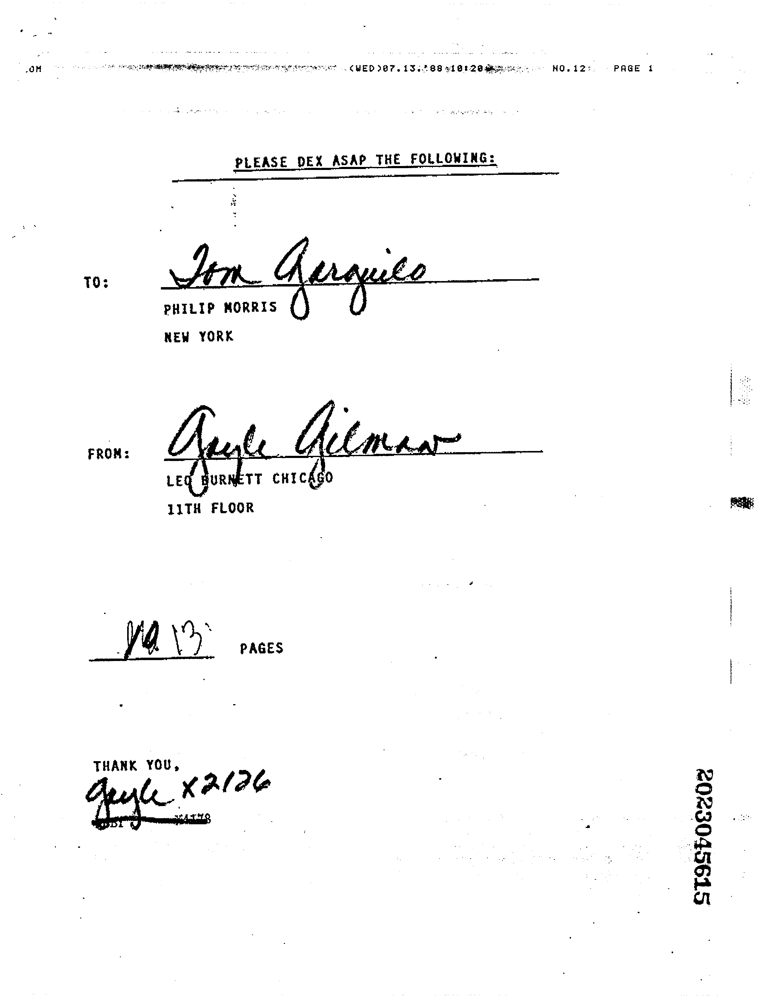 (WED)07.13.'88 10:20 NO.12 PAGE 1
PLEASE DEX ASAP THE FOLLOWING:
TO: Tom Garguilo
PHILIP MORRIS
NEW YORK
FROM: Gayle Gilman
LEO BURNETT CHICAGO
11TH FLOOR
13 PAGES
THANK YOU,
Gayle X2126
2023045615